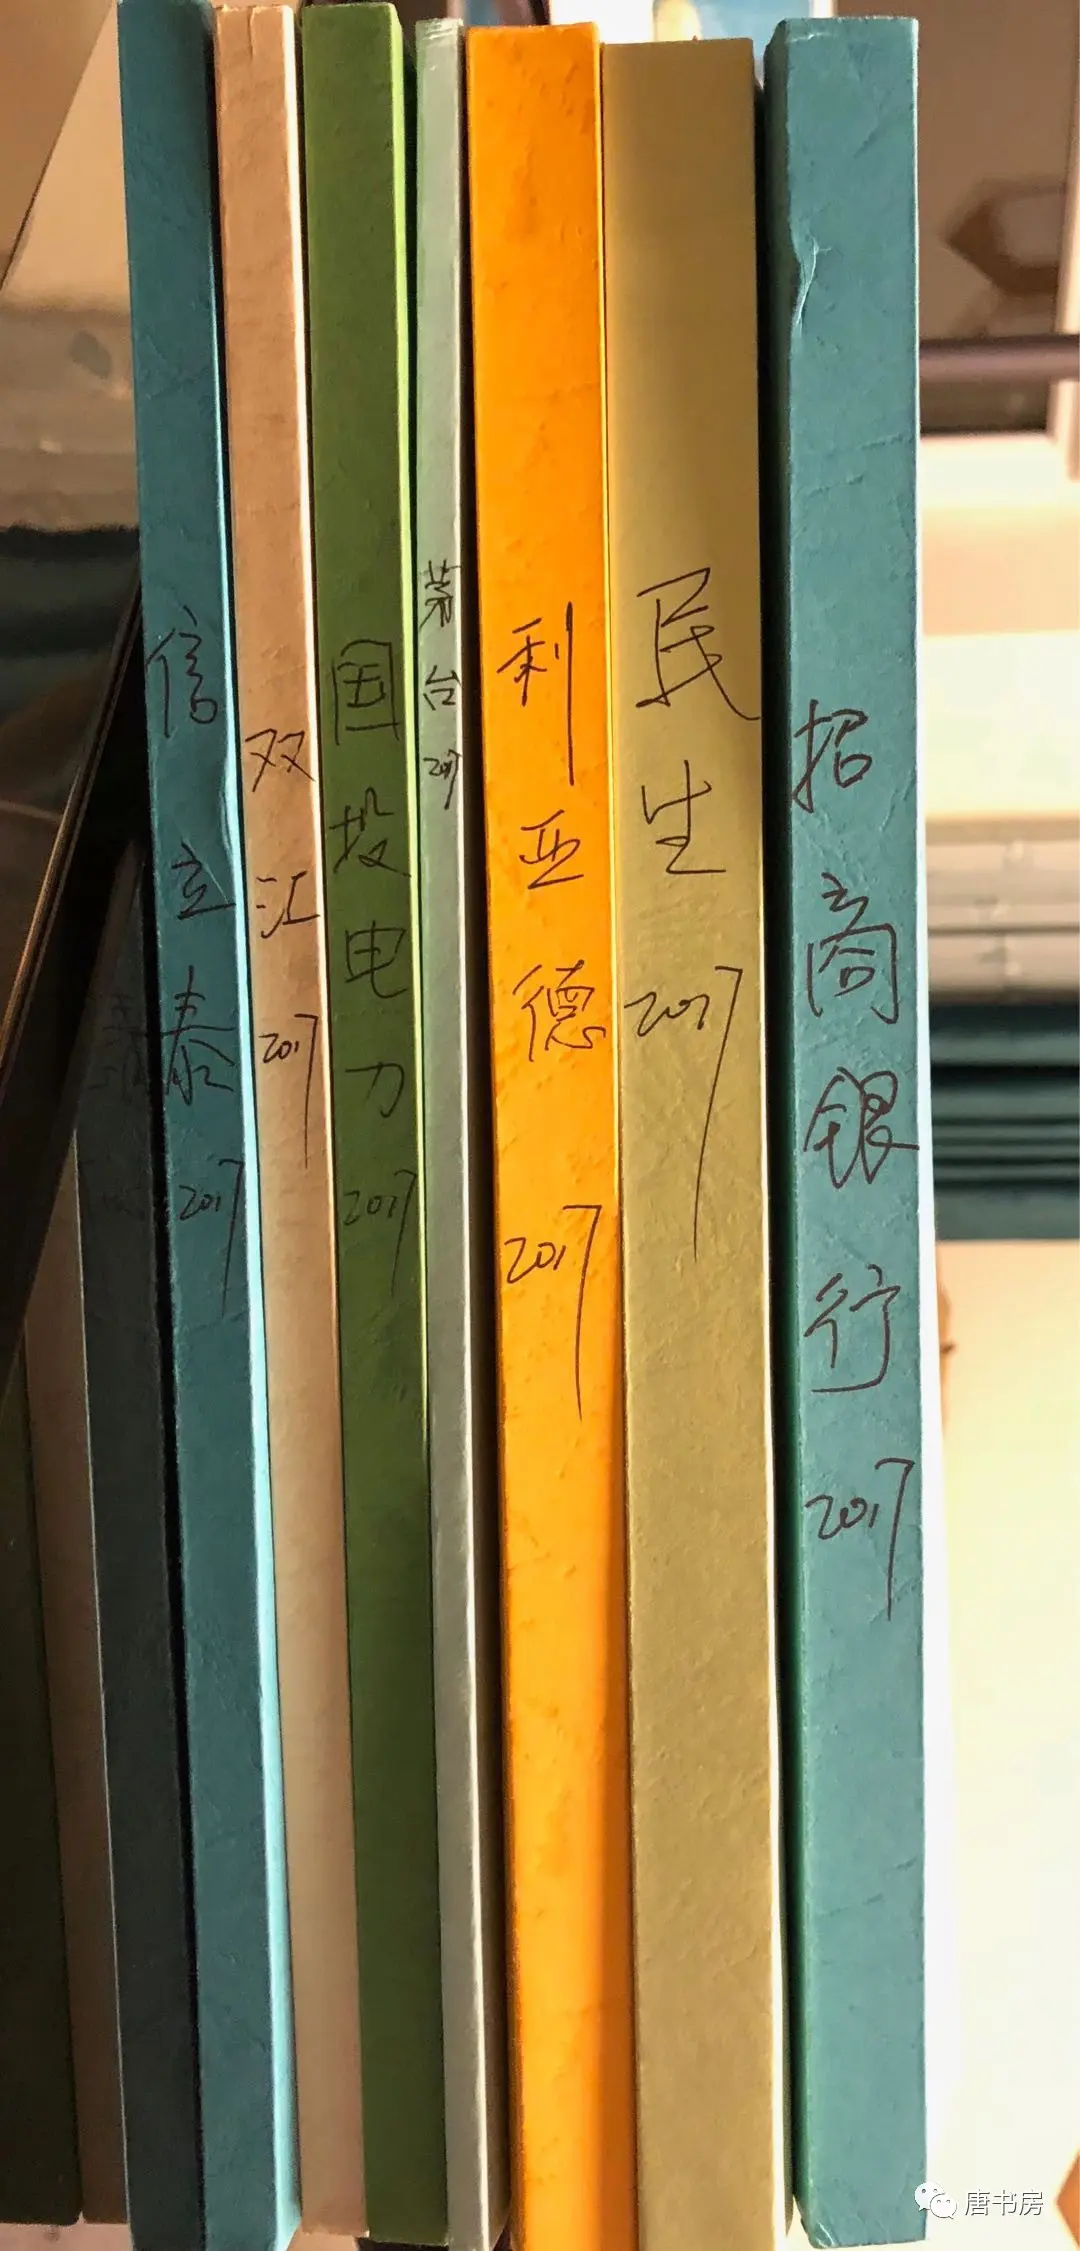 信立泰 2017
双汇 2017
国投电力 2017
茅台 2017
利亚德 2017
民生 2017
招商银行 2017
唐书房